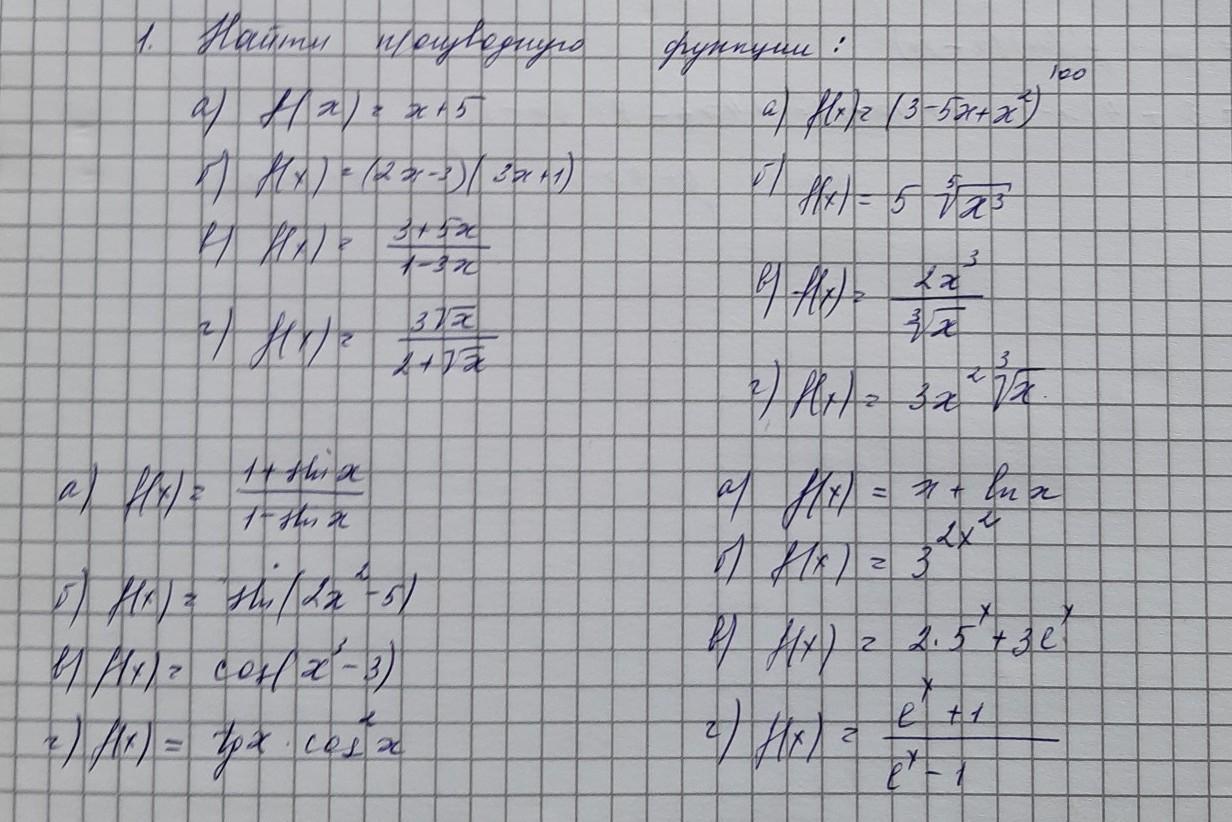 1. Найти производную функции:
а) f(x) = x+5
б) f(x) = (2x-3)(3x+1)
в) f(x) = (3+5x)/(1-3x)
г) f(x) = (3√x)/(2+√x)
а) f(x) = (3-5x+x²)¹⁰⁰
б) f(x) = 5 ⁵√x³
в) f(x) = (2x³)/(³√x)
г) f(x) = 3x² ³√x.
а) f(x) = (1+sin x)/(1-sin x)
б) f(x) = sin(2x²-5)
в) f(x) = cos(x³-3)
г) f(x) = tg x · cos² x
а) f(x) = x + ln x
б) f(x) = 3^(2x²)
в) f(x) = 2·5ˣ + 3eˣ
г) f(x) = (eˣ+1)/(eˣ-1)